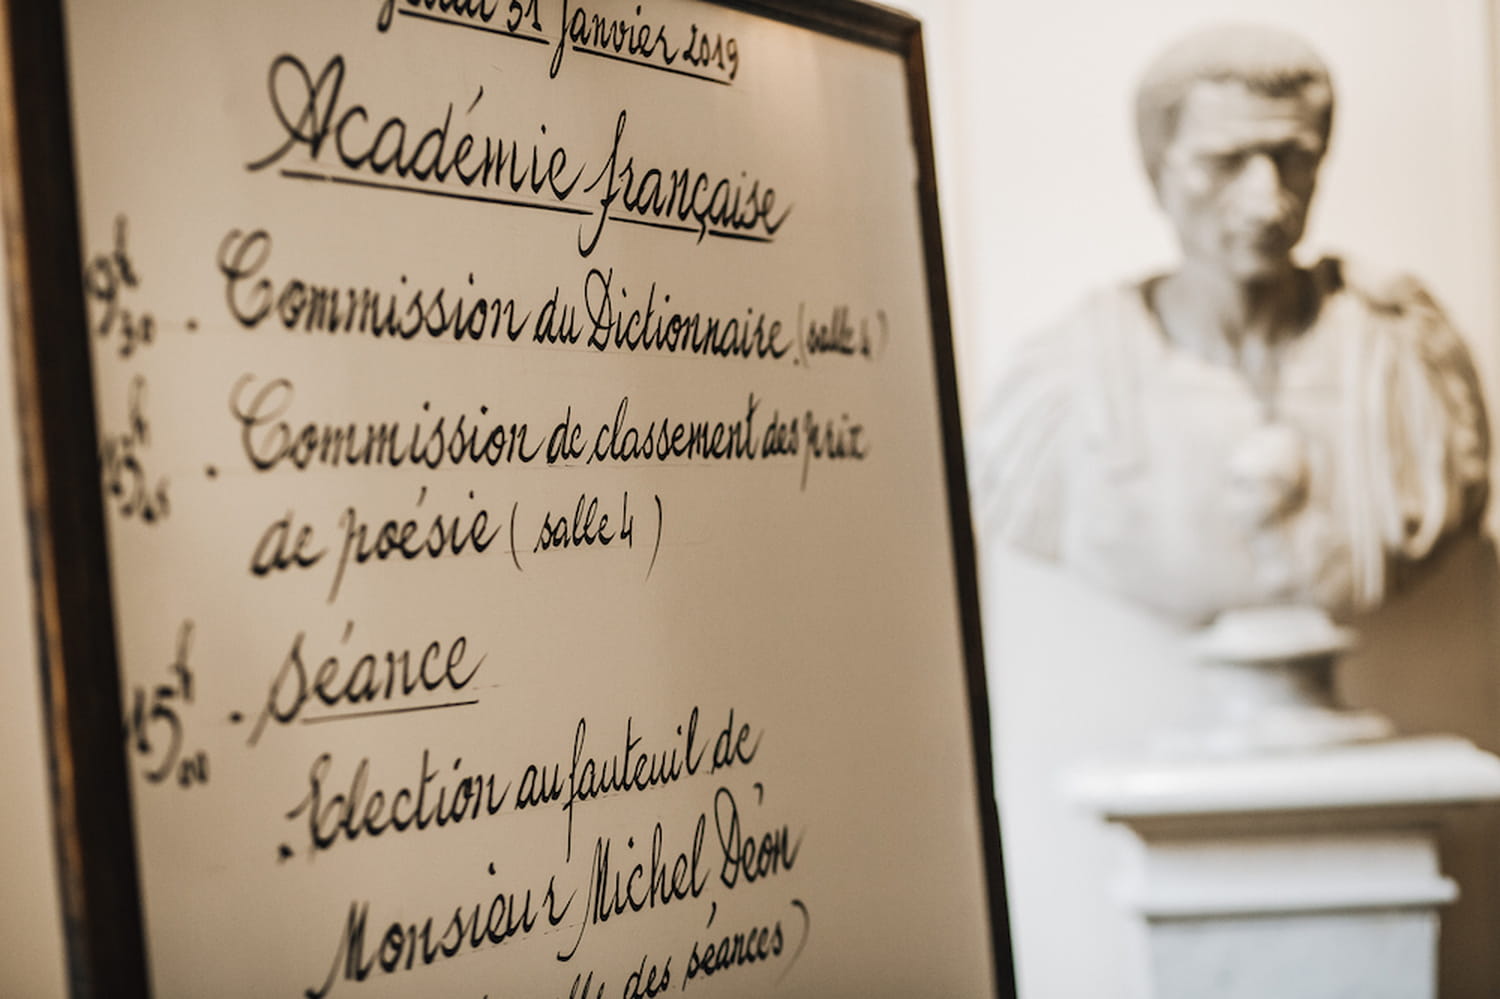 Jeudi 31 Janvier 2019
Académie française
9h30 - Commission du Dictionnaire (salle 4)
- Commission de classement des prix
de poésie (salle 4)
15h00 - Séance
. Election au fauteuil de
Monsieur Michel Déon
des séances)